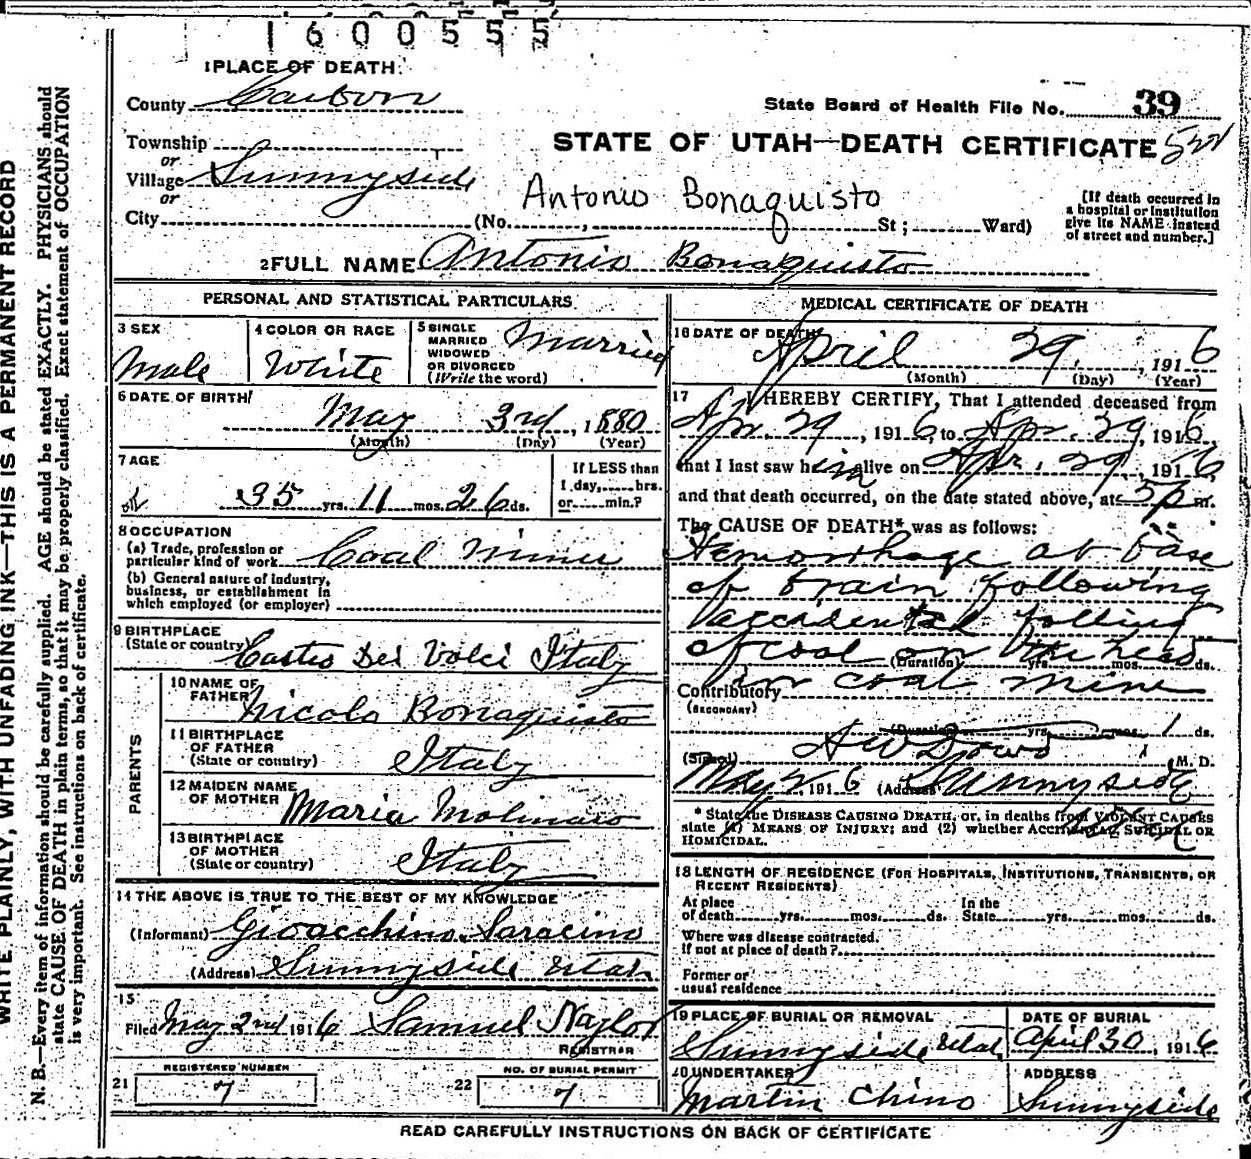 1600555
1 PLACE OF DEATH
County Carbon
State Board of Health File No. 39
Township
or
Village Sunnyside
or
STATE OF UTAH—DEATH CERTIFICATE
Antonio Bonaquisto
City (No. , St ; Ward)
[If death occurred in
a hospital or institution
give its NAME instead
of street and number.]
2 FULL NAME Antonio Bonaquisto
PERSONAL AND STATISTICAL PARTICULARS
3 SEX
Male
4 COLOR OR RACE
White
5 SINGLE
MARRIED
WIDOWED
OR DIVORCED
(Write the word)
Married
6 DATE OF BIRTH
May 3rd, 1880
(Month) (Day) (Year)
7 AGE
35 yrs. 11 mos. 26 ds.
If LESS than
1 day, hrs.
or min.?
8 OCCUPATION
(a) Trade, profession or
particular kind of work Coal Miner
(b) General nature of industry,
business, or establishment in
which employed (or employer)
9 BIRTHPLACE
(State or country) Castro Dei Volci Italy
PARENTS
10 NAME OF
FATHER Nicolo Bonaquisto
11 BIRTHPLACE
OF FATHER
(State or country) Italy
12 MAIDEN NAME
OF MOTHER Maria Molinaro
13 BIRTHPLACE
OF MOTHER
(State or country) Italy
14 THE ABOVE IS TRUE TO THE BEST OF MY KNOWLEDGE
(Informant) Gioacchino Saracino
(Address) Sunnyside Utah
15
Filed May 2nd 1916 Samuel Naylor
REGISTRAR
21 REGISTERED NUMBER
7
22 NO. OF BURIAL PERMIT
7
MEDICAL CERTIFICATE OF DEATH
16 DATE OF DEATH
April 29, 1916
(Month) (Day) (Year)
17 I HEREBY CERTIFY, That I attended deceased from
Apr. 29, 1916, to Apr. 29, 1916,
that I last saw him alive on Apr. 29, 1916
and that death occurred, on the date stated above, at 5 p m.
The CAUSE OF DEATH* was as follows:
Hemorrhage at base
of brain following
accidental falling
of coal on the head
(Duration) yrs. mos. ds.
Contributory in coal mine
(SECONDARY)
(Duration) yrs. mos. 1 ds.
(Signed) A W Dowd M. D.
May 2, 1916 (Address) Sunnyside
* State the DISEASE CAUSING DEATH, or, in deaths from VIOLENT CAUSES
state (1) MEANS OF INJURY; and (2) whether ACCIDENTAL, SUICIDAL OR
HOMICIDAL.
18 LENGTH OF RESIDENCE (FOR HOSPITALS, INSTITUTIONS, TRANSIENTS, OR
RECENT RESIDENTS)
At place
of death yrs. mos. ds.
In the
State yrs. mos. ds.
Where was disease contracted.
if not at place of death?
Former or
usual residence
19 PLACE OF BURIAL OR REMOVAL
Sunnyside Utah
DATE OF BURIAL
April 30, 1916
20 UNDERTAKER
Martin Chino
ADDRESS
Sunnyside
READ CAREFULLY INSTRUCTIONS ON BACK OF CERTIFICATE
WRITE PLAINLY, WITH UNFADING INK—THIS IS A PERMANENT RECORD
N. B.—Every item of information should be carefully supplied. AGE should be stated EXACTLY. PHYSICIANS should
state CAUSE OF DEATH in plain terms, so that it may be properly classified. Exact statement of OCCUPATION
is very important. See instructions on back of certificate.